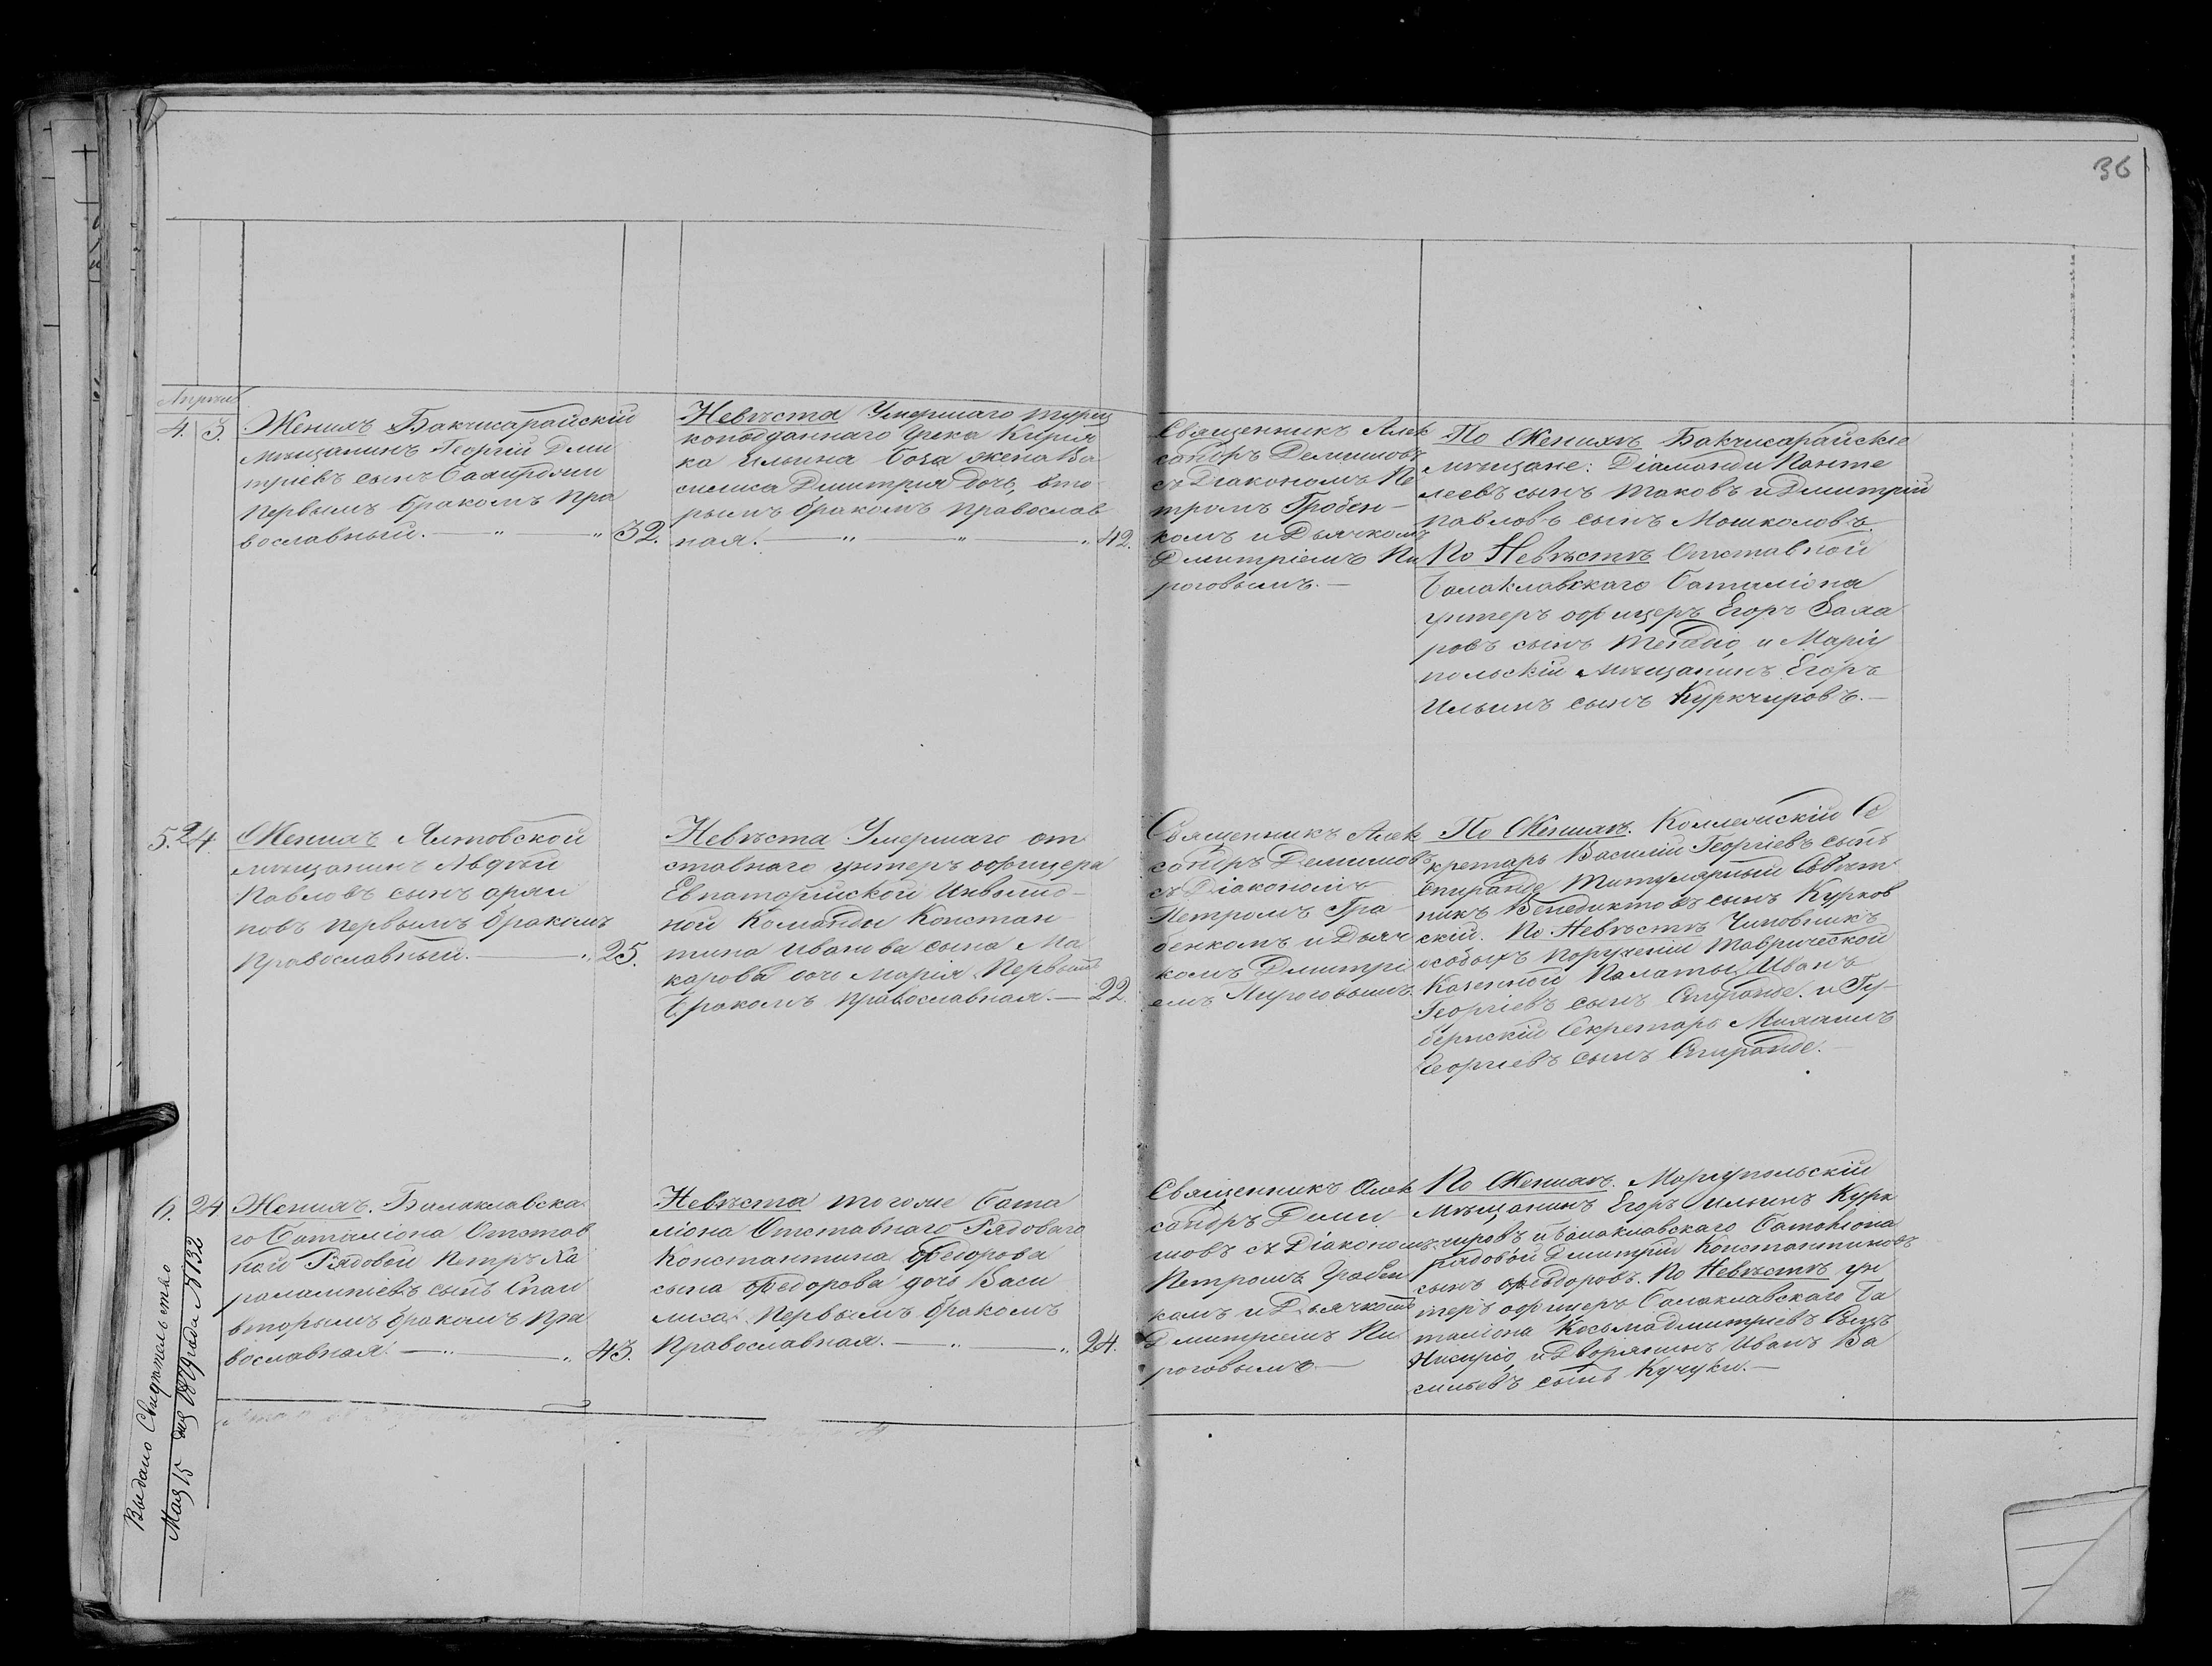 36
Апрѣль
4. 3.
Женихъ Бакчисарайскій
мѣщанинъ Георгій Дми
тріевъ сынъ
первымъ бракомъ пра
вославный. — „ „ 32.
Невѣста Умершаго турец
коподданнаго Грека Кирія
ка Ильина Боза жена Ва
силиса Дмитрія дочь, вто
рымъ бракомъ православ
ная. — „ „ „ 42.
Священникъ Алек
сандръ Демишовъ
съ Діакономъ Пе
тромъ Гробен-
комъ и Дьячкомъ
Дмитріемъ Пи
роговымъ. —
По Женихѣ Бакчисарайскіе
мѣщане: Діаманди Панте
леевъ сынъ Таковъ и Дмитрій
Павловъ сынъ Мошколовъ.
По Невѣстѣ Отставной
Балаклавскаго баталіона
унтеръ офицеръ Егоръ Заха
ровъ сынъ и Маріу
польскій мѣщанинъ Егоръ
Ильинъ сынъ Куркчировъ. —
5. 24.
Женихъ Ялтовской
мѣщанинъ Авдѣй
Павловъ сынъ
новъ первымъ бракомъ
православный. — „ 25.
Невѣста Умершаго от
ставнаго унтеръ офицера
Евпаторійской Инвалид-
ной Команды Констан
тина Иванова сына Ма
карова дочь Марія. Первымъ
бракомъ православная. — 22.
Священникъ Алек
сандръ Демишовъ
съ Діакономъ
Петромъ Гра
бенкомъ и Дьяч
комъ Дмитрі
емъ Пироговымъ.
По Женихѣ. Коллежскій Се
кретарь Василій Георгіевъ сынъ
Спиранде Титулярный Совѣт
никъ Венедиктовъ сынъ Курков
скій. По Невѣстѣ Чиновникъ
особыхъ порученій Таврической
Казенной Палаты Иванъ
Георгіевъ сынъ Спиранде. и Гу-
бернскій Секретарь Михаилъ
Георгіевъ сынъ Спиранде. —
6. 24
Женихъ. Балаклавска
го Баталіона Отстав
ной Рядовой Петръ Ха
ралампіевъ сынъ Спаи
вторымъ бракомъ пра
вославная. — „ — „ 43.
Невѣста тогоже Бата
ліона Отставнаго Рядоваго
Константина Федорова
сына Федорова дочь Васи
лиса. Первымъ бракомъ
Православная. — „ — „ 24.
Священникъ Алек
сандръ Деми
шовъ съ Діакономъ
Петромъ Грабен
комъ и Дьячкомъ
Дмитріемъ Пи
роговымъ. —
По Женихѣ. Маріупольскій
мѣщанинъ Егоръ Ильинъ Курк
чировъ и балаклавскаго Баталіона
рядовой Дмитрій Константиновъ
сынъ Федоровъ. По Невѣстѣ ун
теръ офицеръ Балаклавскаго Ба
таліона Косьма Дмитріевъ сынъ
и Дворянинъ Иванъ Ва
сильевъ сынъ Кучуки. —
Выдано Свидѣтельство
Мая 15 дня года № 132